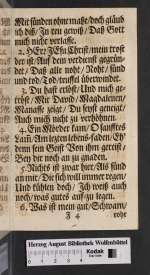 Mit sünden ohne maße/doch gläub
ich diß/ Zu ten gewiß/ Daß Gott
mich nicht verlasse.
2. HErr JEsu Christ/mein trost
der ist/ Auf dein verdienst gegrün-
det/ Daß alle noht/ / Sünd
und tod/Tod/teuffel überwindet.
3. Du hast erlöst/ Und mich ge-
tröst/ Mir David/Magdalenen/
Manasse zeigt/ Du seyst geneigt/
Auch mich nicht zu verhöhnen.
4. Ein Mörder kam/ O sanfftes
Lam/ Am letzten lebens-faden/
denn sein Gott Von ihm gereist/
Bey dir noch an zu gnaden.
5. Nichts ist zwar hier/Als sünd
an mir/ Die sich will immer regen/
Und kühlen doch/ Ich weiß auch
noch/was gutes auf zu legen.
6. Was ist mein gut/Schwam/
J 4 rohr
Herzog August Bibliothek Wolfenbüttel
Kodak